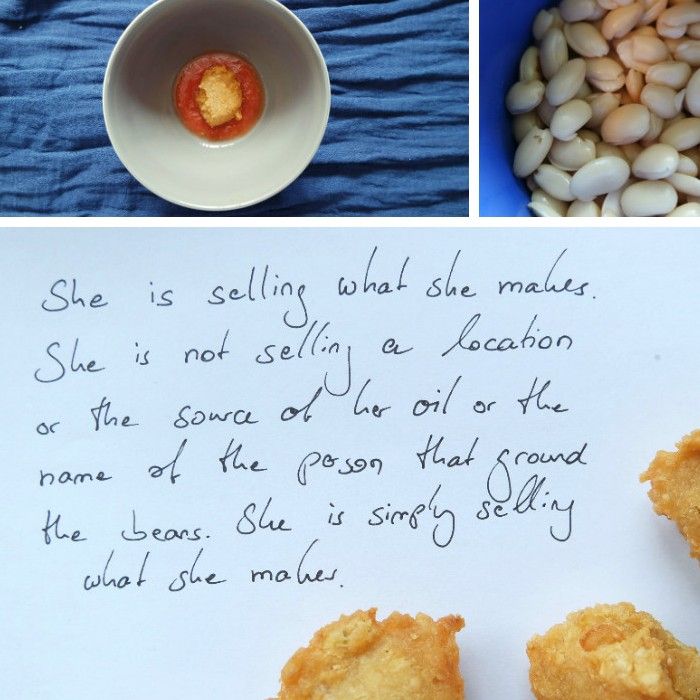 She is selling what she makes.
She is not selling a location
or the source of her oil or the
name of the person that ground
the beans. She is simply selling
what she makes.